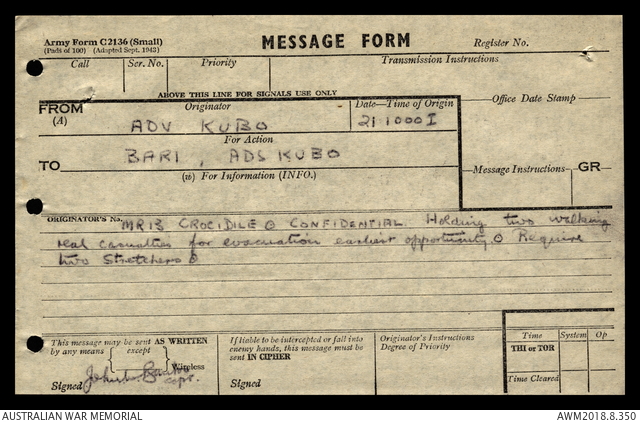 Army Form C2136 (Small)
(Pads of 100) (Adapted Sept. 1943)
MESSAGE FORM
Register No.
Call
Ser. No.
Priority
Transmission Instructions
ABOVE THIS LINE FOR SIGNALS USE ONLY
FROM
(A)
Originator
Date—Time of Origin
Office Date Stamp
ADV KUBO
211000 I
For Action
TO
BARI, ADS KUBO
Message Instructions
GR
(W) For Information (INFO.)
ORIGINATOR'S No.
MR13 CROCIDILE CONFIDENTIAL. Holding two walking
real casualties for evacuation earliest opportunity Require
two Stretchers
This message may be sent AS WRITTEN
by any means
except
Wireless
Signed
Capt.
If liable to be intercepted or fall into
enemy hands, this message must be
sent IN CIPHER
Signed
Originator's Instructions
Degree of Priority
Time
System
Op
THI or TOR
Time Cleared
AUSTRALIAN WAR MEMORIAL
AWM2018.8.350